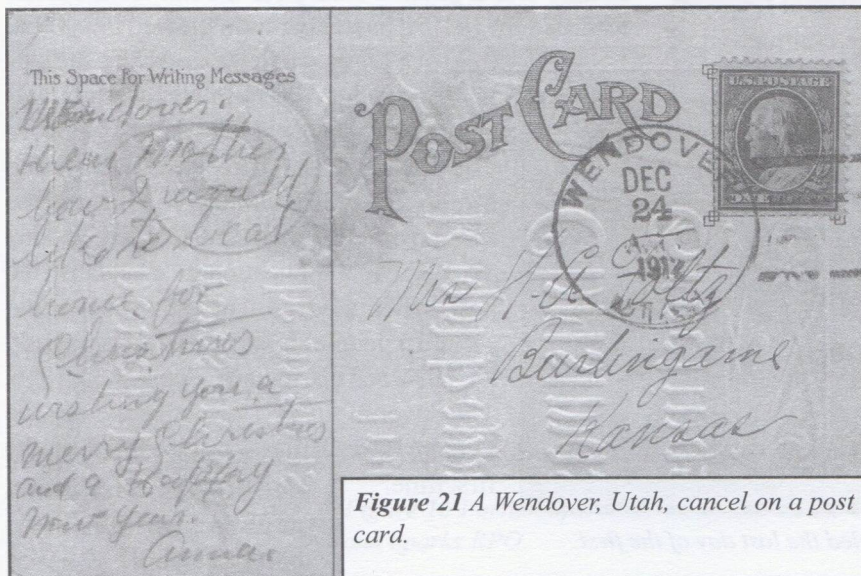 This Space For Writing Messages
Wendover.
Dear Mother
how I would
like to be at
home for
Christmas
wishing you a
merry Christmas
and a Happy
New Year.
Anna
POST CARD
U.S. POSTAGE
ONE
WENDOVER
DEC
24
1912
UTAH
Mrs H.A.
Burlingame
Kansas
Figure 21 A Wendover, Utah, cancel on a post
card.